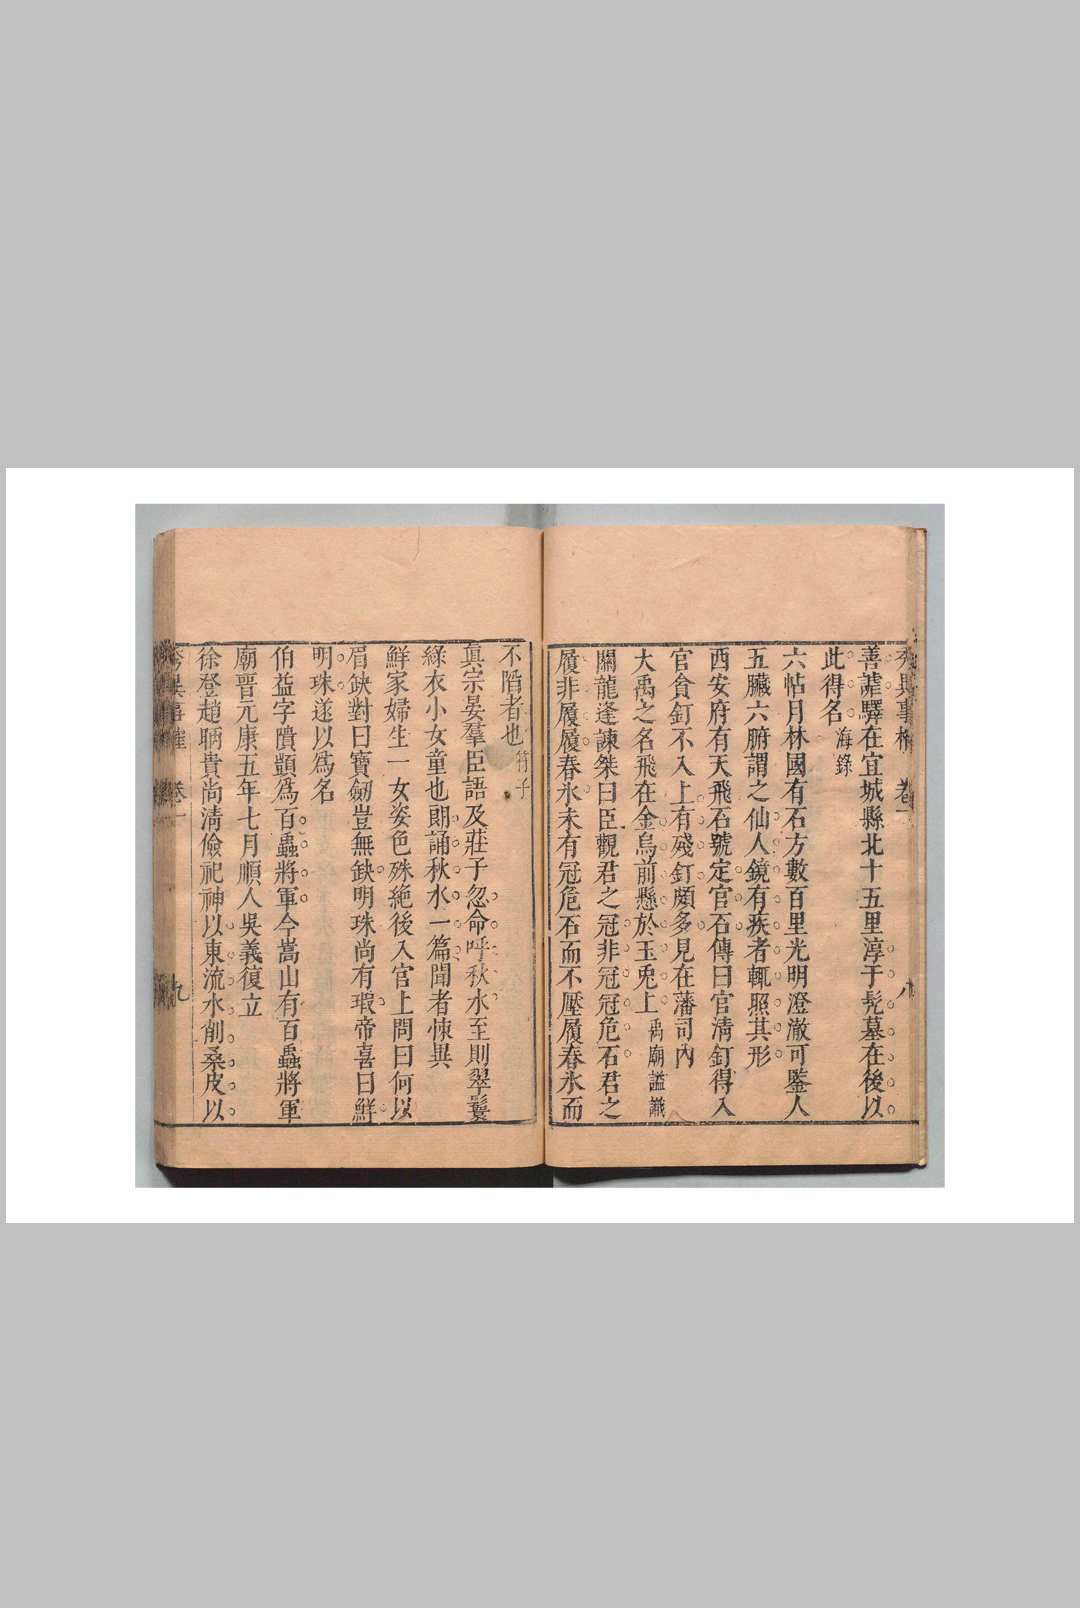 善謔驛在宜城縣北十五里淳于髠墓在後以
此得名海錄
六帖月林國有石方數百里光明澄澈可鑒人
五臟六腑謂之仙人鏡有疾者輒照其形
西安府有天飛石號定官石傳曰官淸釘得入
官貪釘不入上有殘釘頗多見在藩司內
大禹之名飛在金烏前懸於玉兎上禹廟讖
關龍逢諫桀曰臣觀君之冠非冠冠危石君之
履非履履春氷未有冠危石而不壓履春氷而
不陷者也符子
眞宗晏羣臣語及莊子忽命呼秋水至則翠鬟
綠衣小女童也朗誦秋水一篇聞者悚異
鮮家婦生一女姿色殊絶後入官上問曰何以
眉缺對曰寶劒豈無缺明珠尚有瑕帝喜曰鮮
明珠遂以爲名
伯益字隤顗爲百蟲將軍今嵩山有百蟲將軍
廟晉元康五年七月順人吳義復立
徐登趙昞貴尚淸儉祀神以東流水削桑皮以
卷一 九